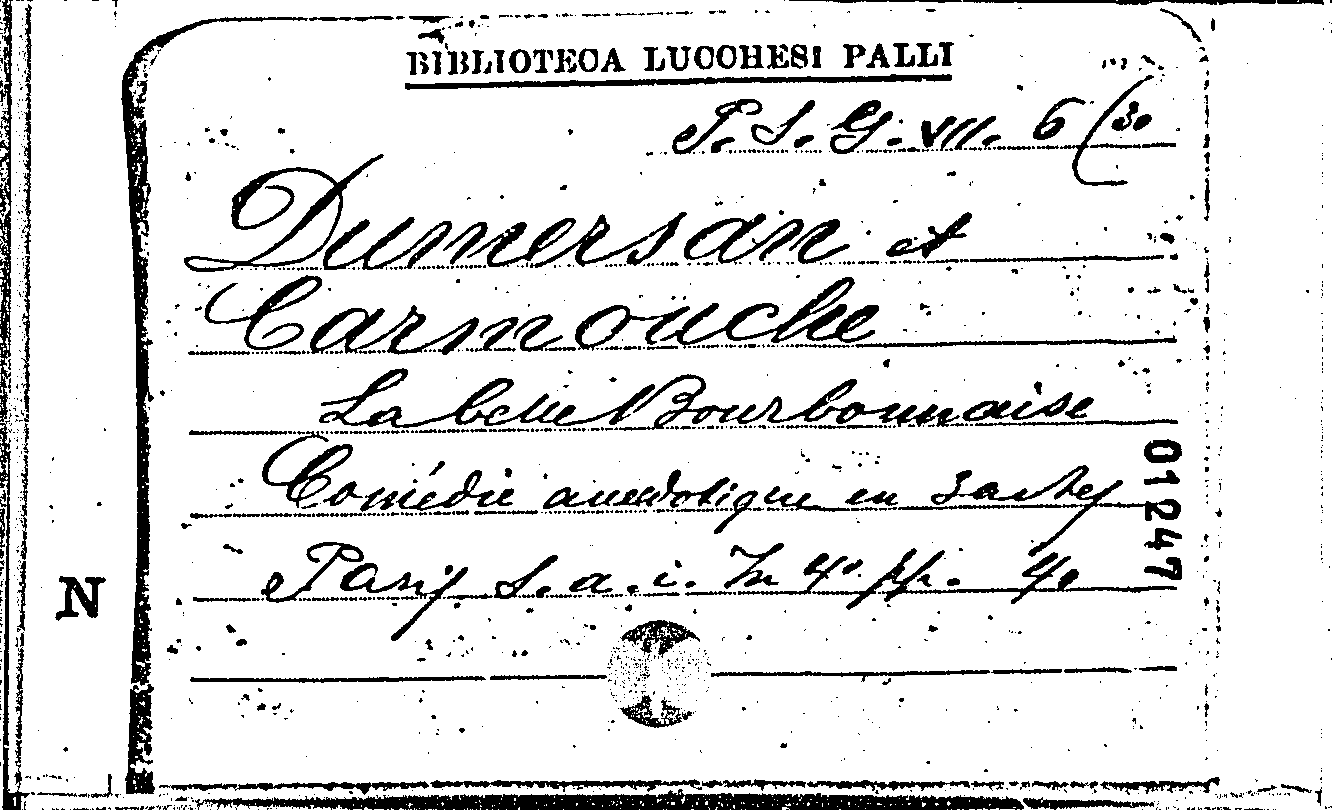 BIBLIOTECA LUCCHESI PALLI
P. S. G. VII. 6 (30
Dumersan et
Carmouche
La belle Bourbonnaise
Comédie anecdotique en 3 actes
Paris s. a. i. In 4º. pp. 40
01247
N